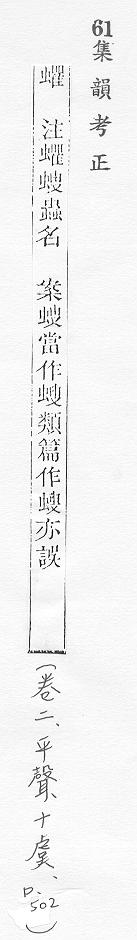 61集韻考正
蠷 注蠷螋蟲名 案螋當作螋類篇作螋亦誤
(卷二、平聲、十虞、p.502)